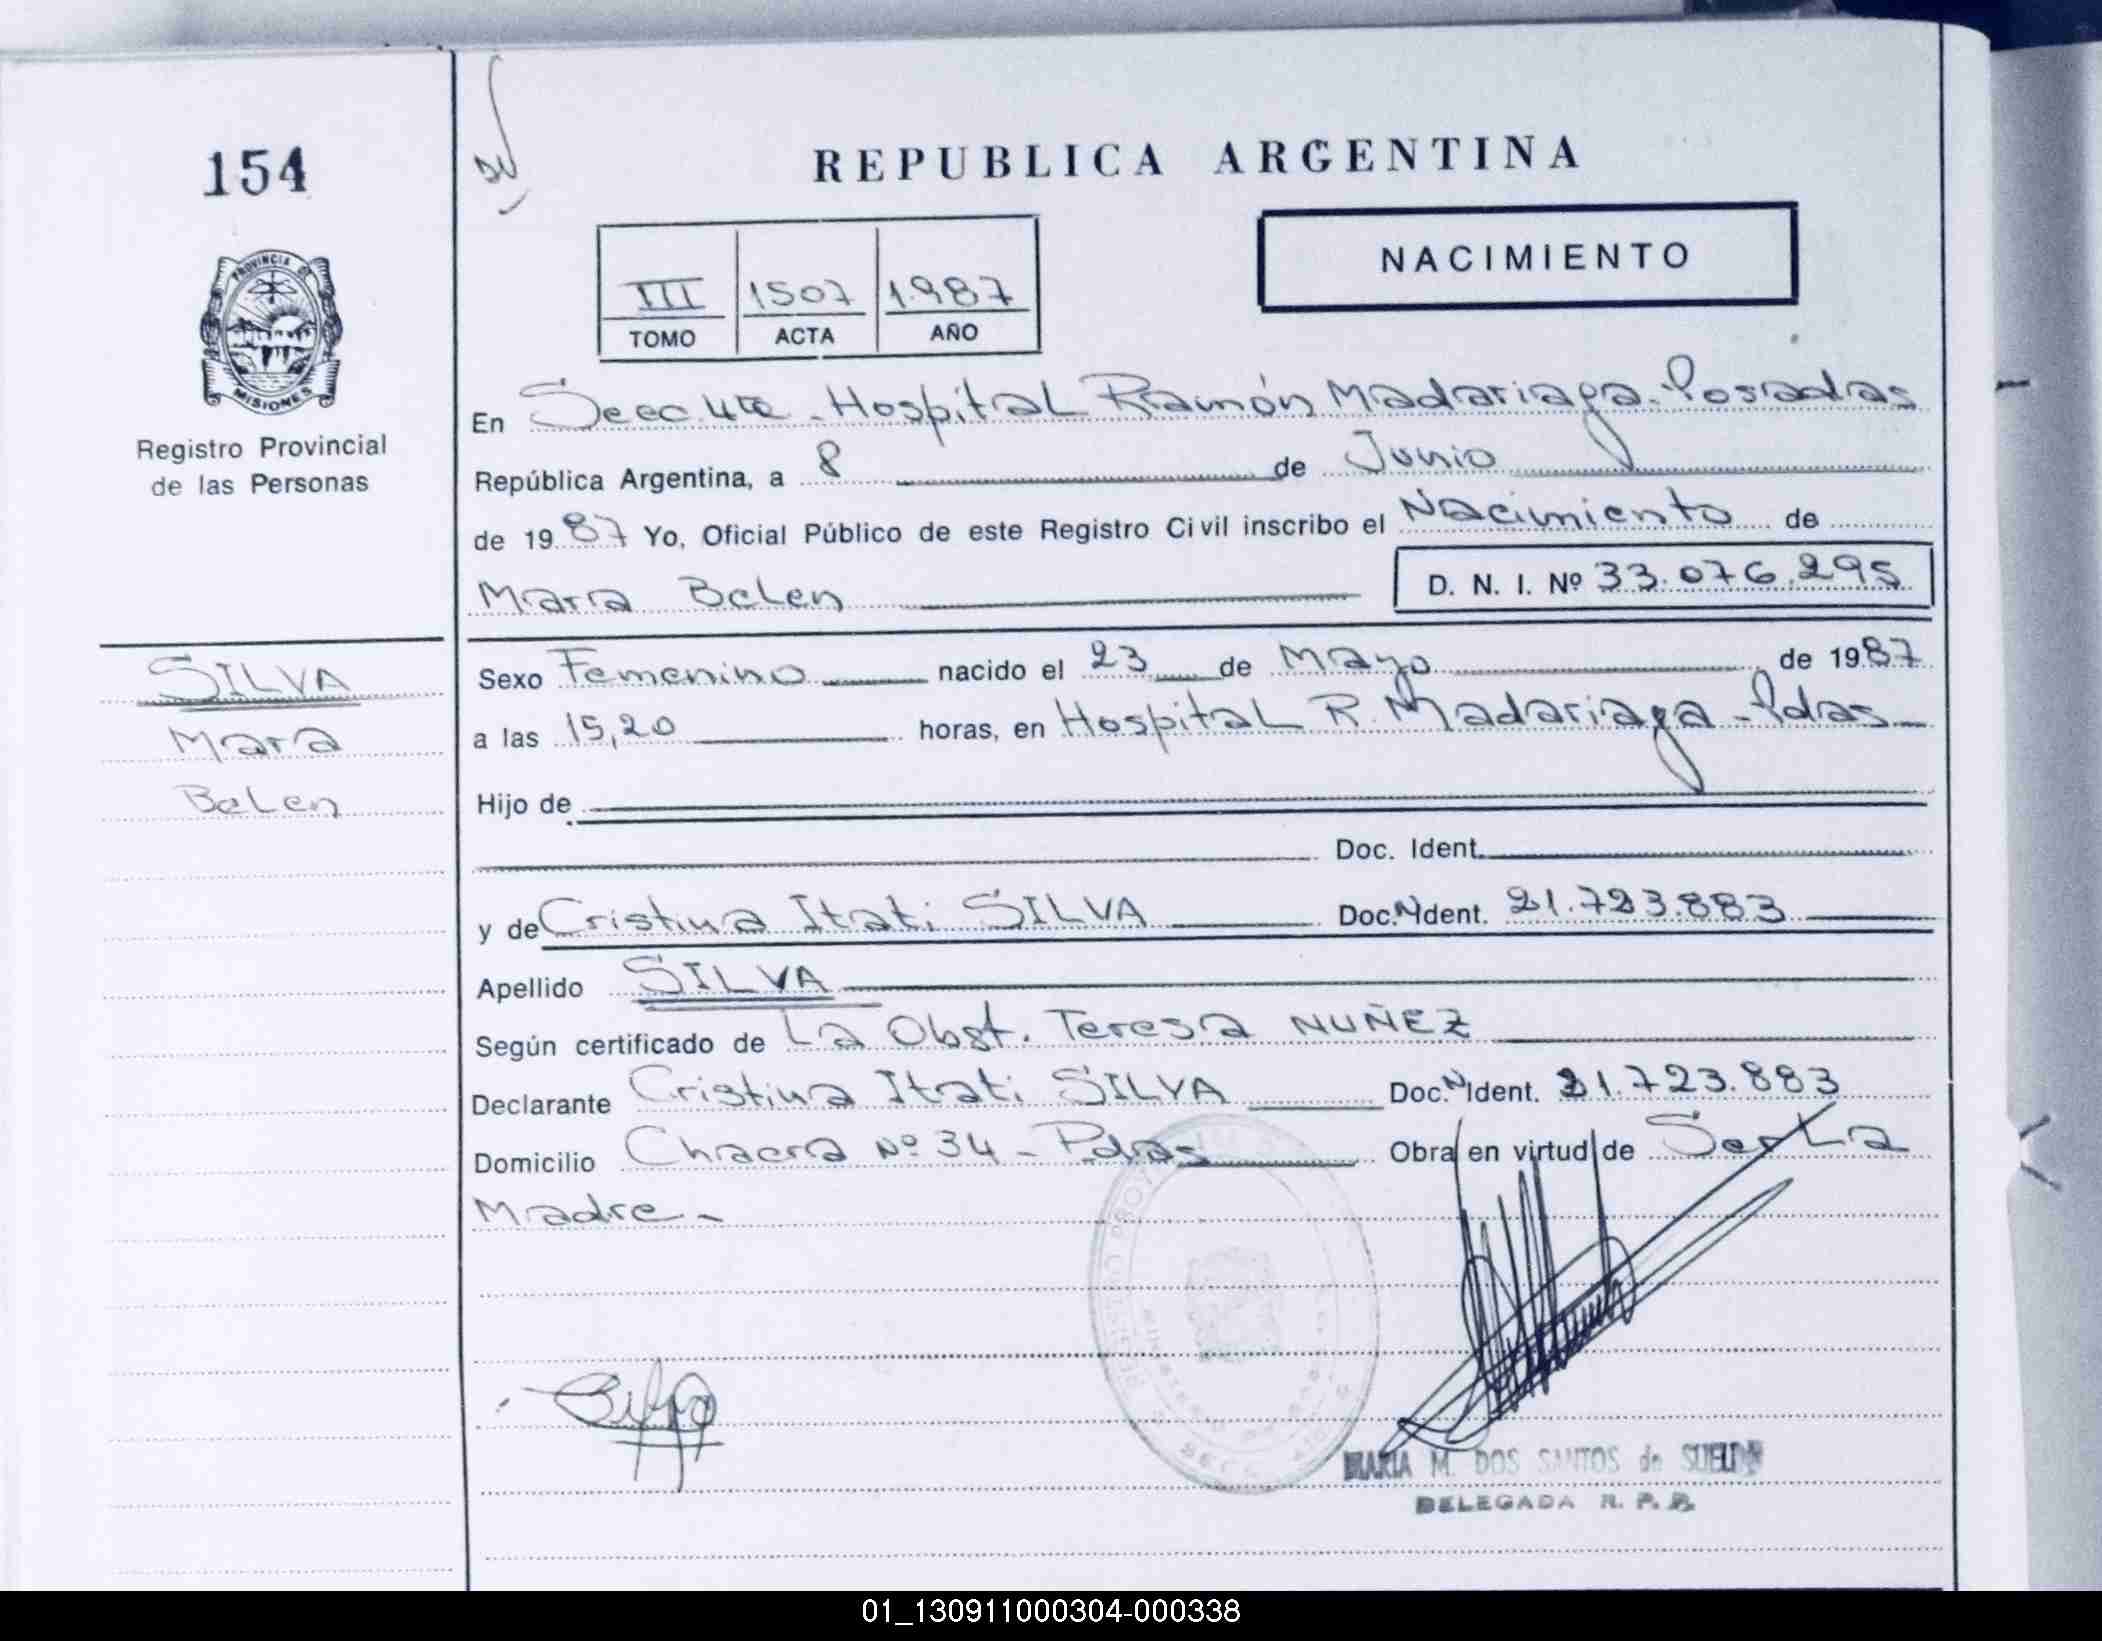 154
REPUBLICA ARGENTINA
NACIMIENTO
III 1507 1.987
TOMO ACTA AÑO
PROVINCIA DE
MISIONES
Registro Provincial
de las Personas
En Hospital Ramón Madariaga - Posadas
República Argentina, a 8 de Junio
de 1987 Yo, Oficial Público de este Registro Civil inscribo el Nacimiento de
Mara Belen
D. N. I. Nº 33.076.295
SILVA
Mara
Belen
Sexo Femenino nacido el 23 de Mayo de 1987
a las 15,20 horas, en Hospital R. Madariaga - Pdas
Hijo de
Doc. Ident.
y de Cristina Itati SILVA Doc. N Ident. 21.723.883
Apellido SILVA
Según certificado de La Obst. Teresa NUÑEZ
Declarante Cristina Itati SILVA Doc. N Ident. 21.723.883
Domicilio Chacra Nº 34 - Pdas Obra en virtud de Ser La
Madre -
MARIA M. DOS SANTOS de SUELDO
DELEGADA R. P. P.
01_130911000304-000338